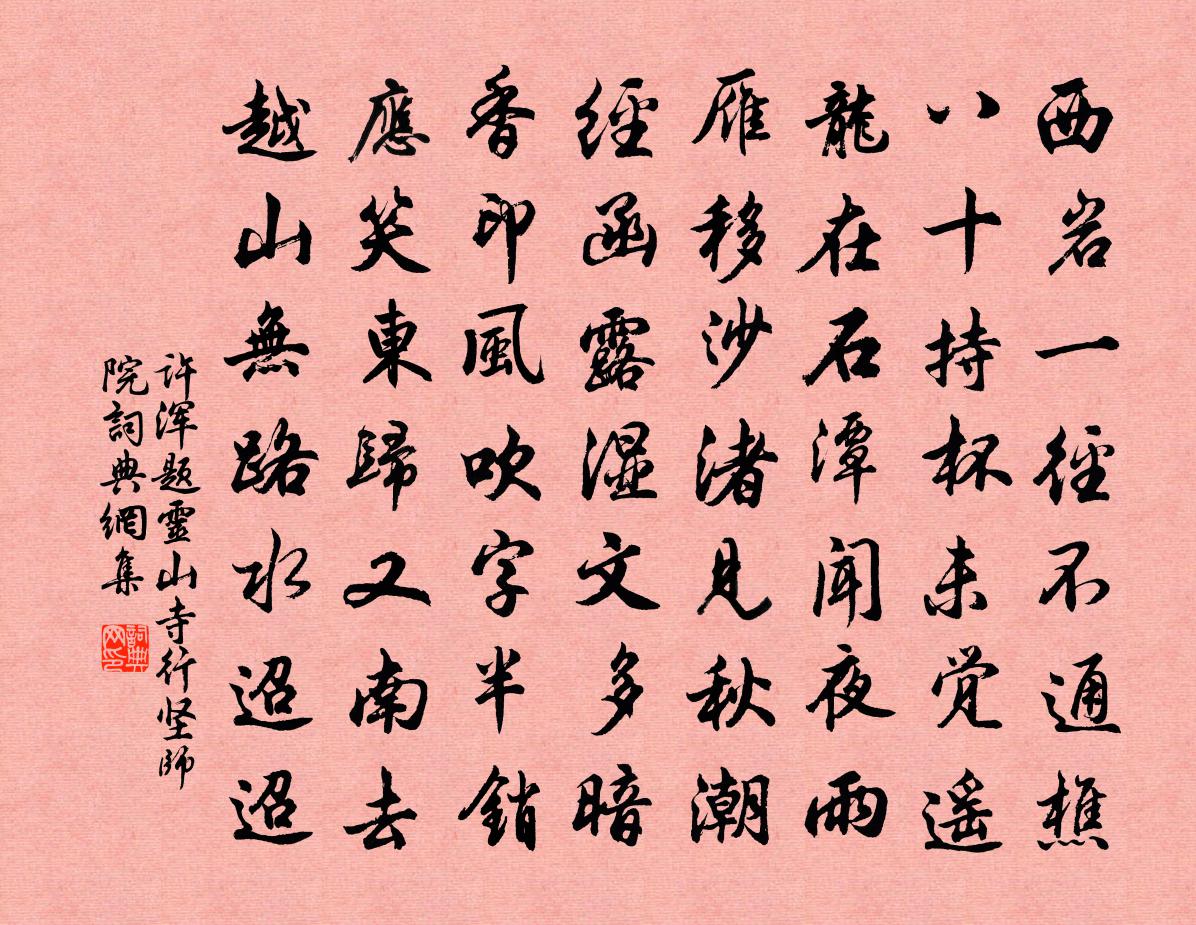 西岩一徑不通樵
八十持杯未覚遥
龍在石潭聞夜雨
雁移沙渚見秋潮
經函露湿文多暗
香印風吹字半銷
應笑東歸又南去
越山無路水迢迢
许浑题靈山寺行坚師
院詞典網集
詞典
网印